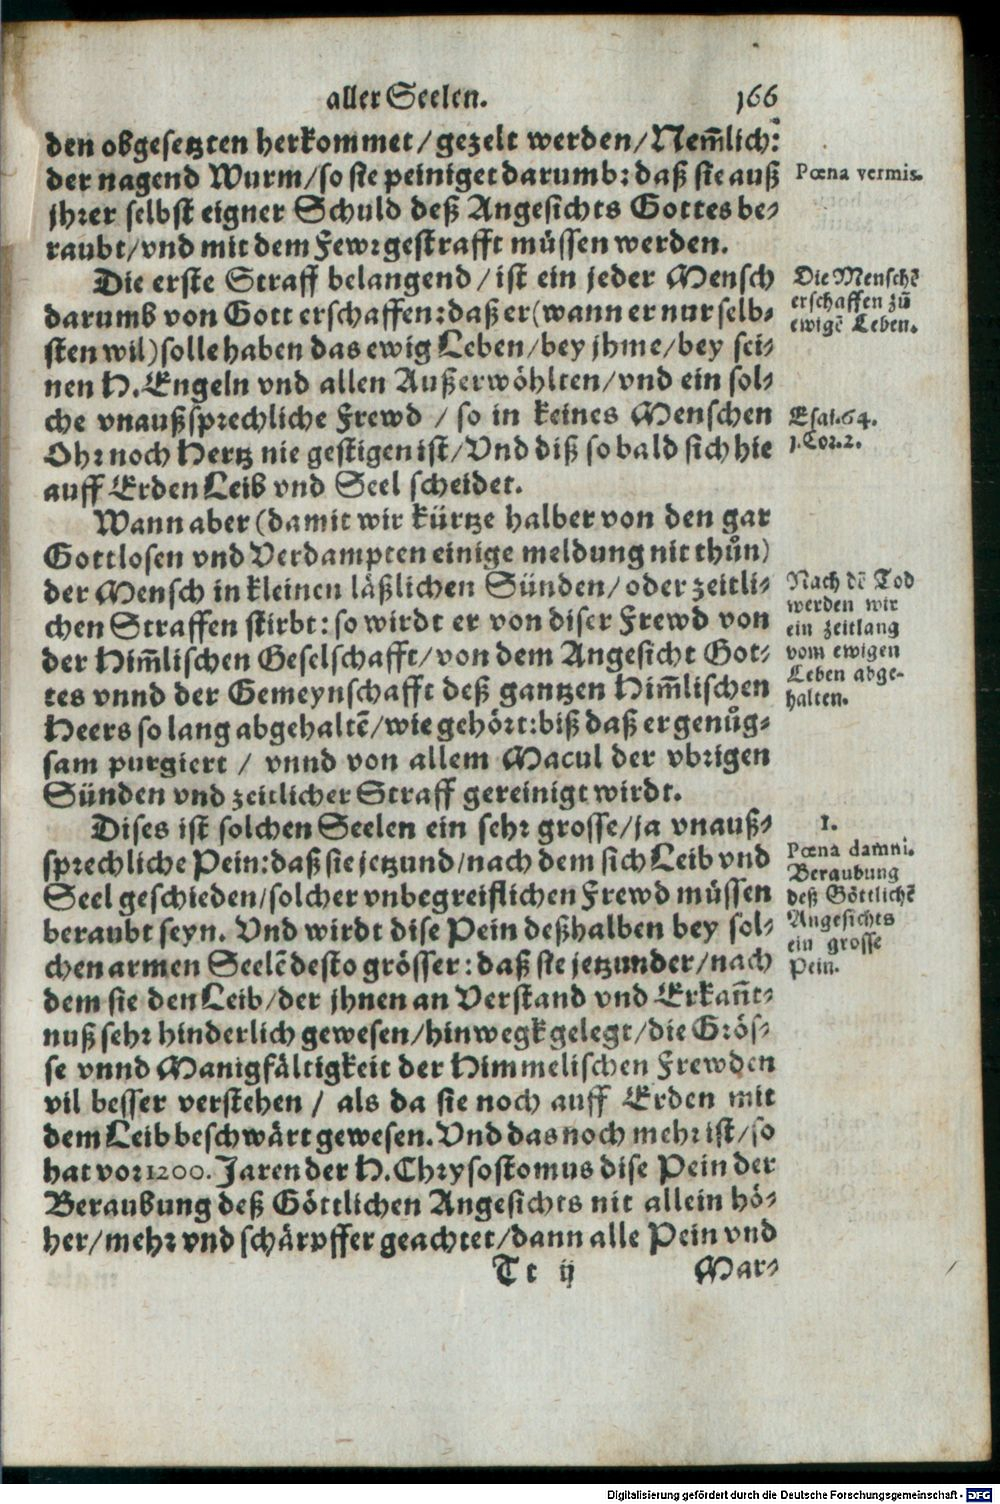 aller Seelen. 166
den obgesetzten herkommet/gezelt werden/Nem̃lich:
der nagend Wurm/so sie peiniget darumb: daß sie auß
jhrer selbst eigner Schuld deß Angesichts Gottes be-
raubt/vnd mit dem Fewr gestrafft müssen werden.
Poena vermis.
Die erste Straff belangend/ist ein jeder Mensch
darumb von Gott erschaffen: daß er (wann er nur selb-
sten wil) solle haben das ewig Leben/bey jhme/bey sei-
nen H. Engeln vnd allen Außerwöhlten/vnd ein sol-
che vnaußsprechliche Frewd / so in keines Menschen
Ohr noch Hertz nie gestigen ist/Vnd diß so bald sich hie
auff Erden Leib vnd Seel scheidet.
Die Menschẽ
erschaffen zũ
ewigẽ Leben.
Esai.64.
1.Cor.2.
Wann aber (damit wir kürtze halber von den gar
Gottlosen vnd Verdampten einige meldung nit thůn)
der Mensch in kleinen läßlichen Sünden/oder zeitli-
chen Straffen stirbt: so wirdt er von diser Frewd von
der Him̃lischen Geselschafft/von dem Angesicht Got-
tes vnnd der Gemeynschafft deß gantzen Him̃lischen
Heers so lang abgehaltẽ/wie gehört: biß daß er genůg-
sam purgiert / vnnd von allem Macul der vbrigen
Sünden vnd zeitlicher Straff gereinigt wirdt.
Nach dẽ Tod
werden wir
ein zeitlang
vom ewigen
Leben abge-
halten.
Dises ist solchen Seelen ein sehr grosse/ja vnauß-
sprechliche Pein: daß sie jetzund/nach dem sich Leib vnd
Seel geschieden/solcher vnbegreiflichen Frewd müssen
beraubt seyn. Vnd wirdt dise Pein deßhalben bey sol-
chen armen Seelẽ desto grösser: daß sie jetzunder/nach
dem sie den Leib/der jhnen an Verstand vnd Erkañt-
nuß sehr hinderlich gewesen/hinwegk gelegt/die Grös-
se vnnd Manigfältigkeit der Himmelischen Frewden
vil besser verstehen / als da sie noch auff Erden mit
dem Leib beschwärt gewesen. Vnd das noch mehr ist/so
hat vor 1200. Jaren der H. Chrysostomus dise Pein der
Beraubung deß Göttlichen Angesichts nit allein hö-
her/mehr vnd schärpffer geachtet/dann alle Pein vnd
1.
Poena damni.
Beraubung
deß Göttlichẽ
Angesichts
ein grosse
Pein.
Tt ij Mar-
Digitalisierung gefördert durch die Deutsche Forschungsgemeinschaft - DFG